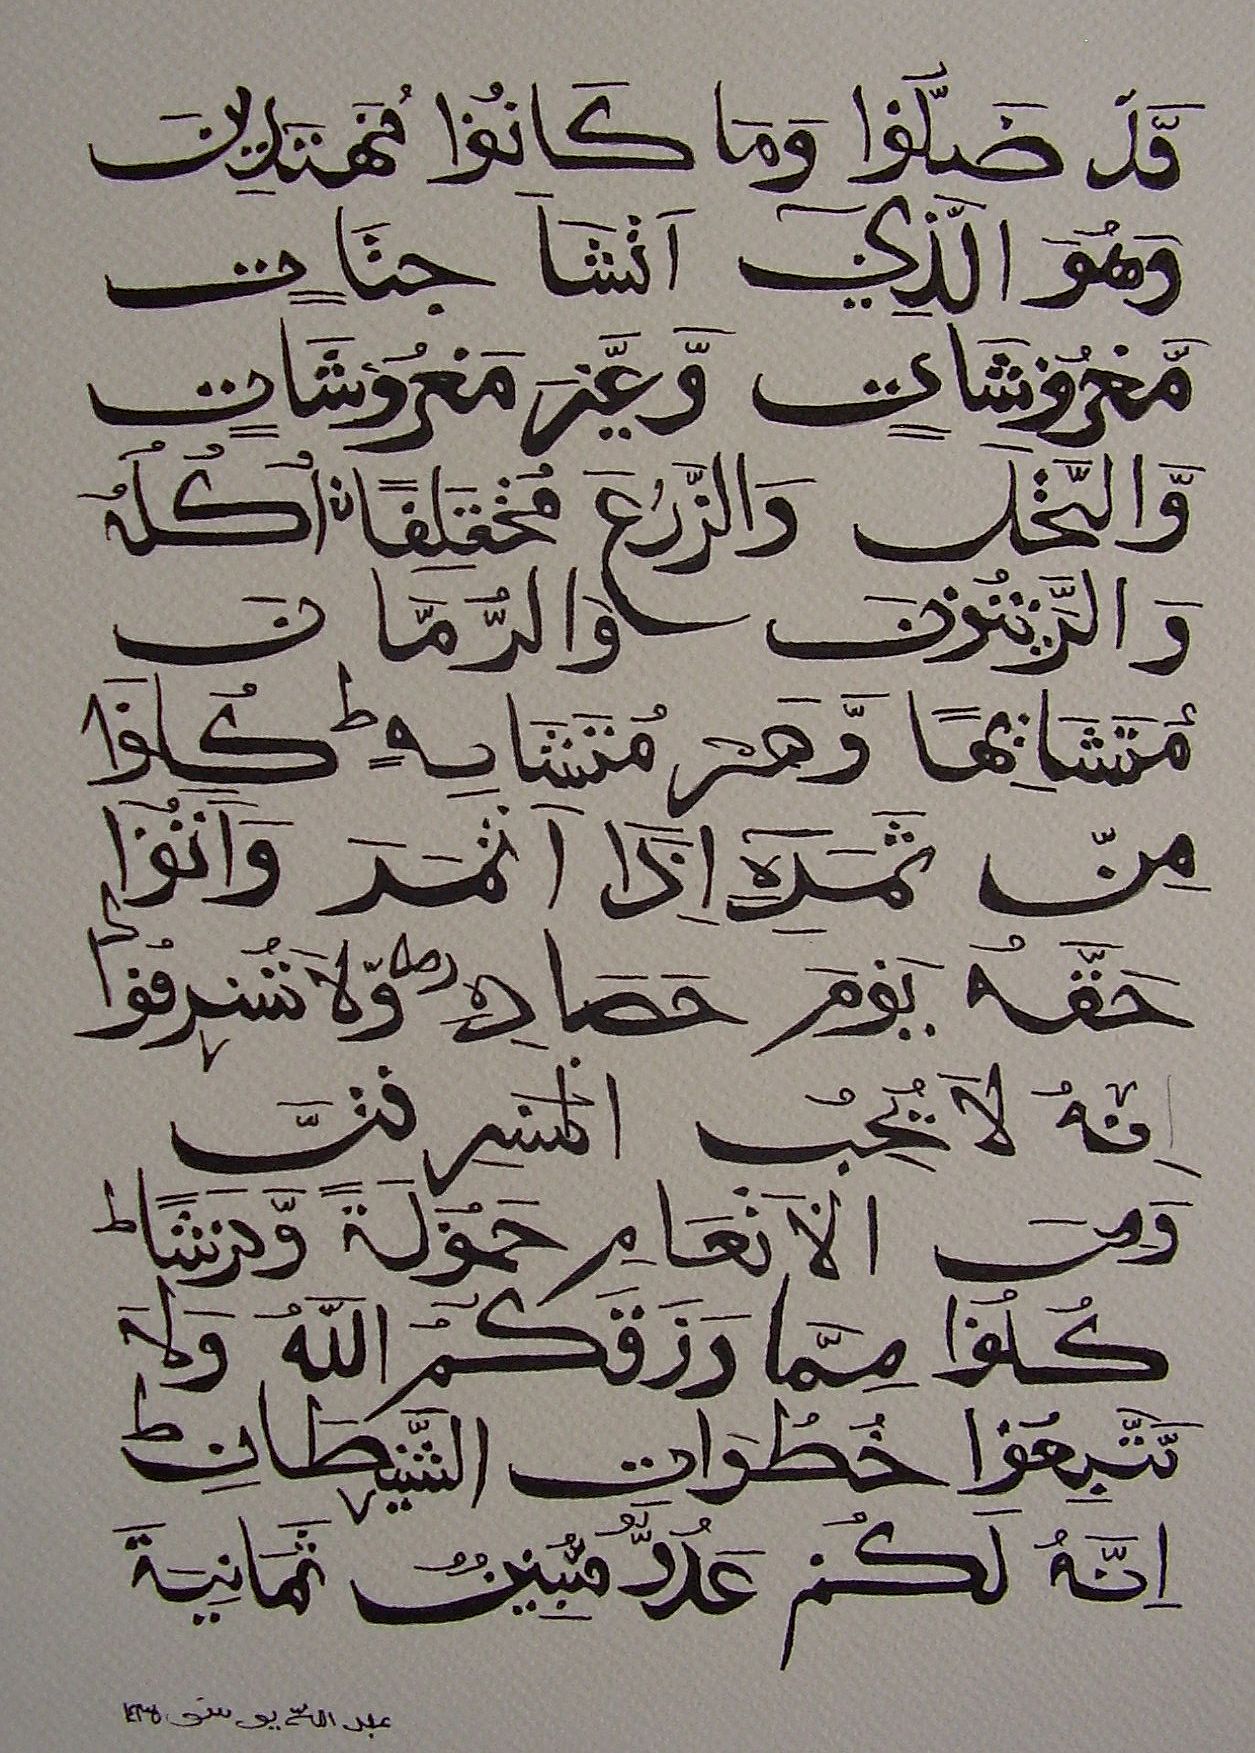 قَدْ ضَلُّوْا وَمَا كَانُوْا مُهْتَدِيْنَ
وَهُوَ الَّذِيْٓ اَنْشَاَ جَنَّاتٍ
مَّعْرُوْشَاتٍ وَّغَيْرَ مَعْرُوْشَاتٍ
وَّالنَّخْلَ وَالزَّرْعَ مُخْتَلِفًا اُكُلُهُ
وَالزَّيْتُوْنَ وَالرُّمَّانَ
مُتَشَابِهًا وَّغَيْرَ مُتَشَابِهٍ ط كُلُوْا
مِنْ ثَمَرِهٖٓ اِذَا اَثْمَرَ وَاٰتُوْا
حَقَّهُ يَوْمَ حَصَادِهٖ وَلَا تُسْرِفُوْا ط
اِنَّهُ لَا يُحِبُّ الْمُسْرِفِيْنَ
وَمِنَ الْاَنْعَامِ حَمُوْلَةً وَّفَرْشًا ط
كُلُوْا مِمَّا رَزَقَكُمُ اللّٰهُ وَلَا
تَتَّبِعُوْا خُطُوَاتِ الشَّيْطَانِ ط
اِنَّهُ لَكُمْ عَدُوٌّ مُّبِيْنٌ ثَمَانِيَةَ